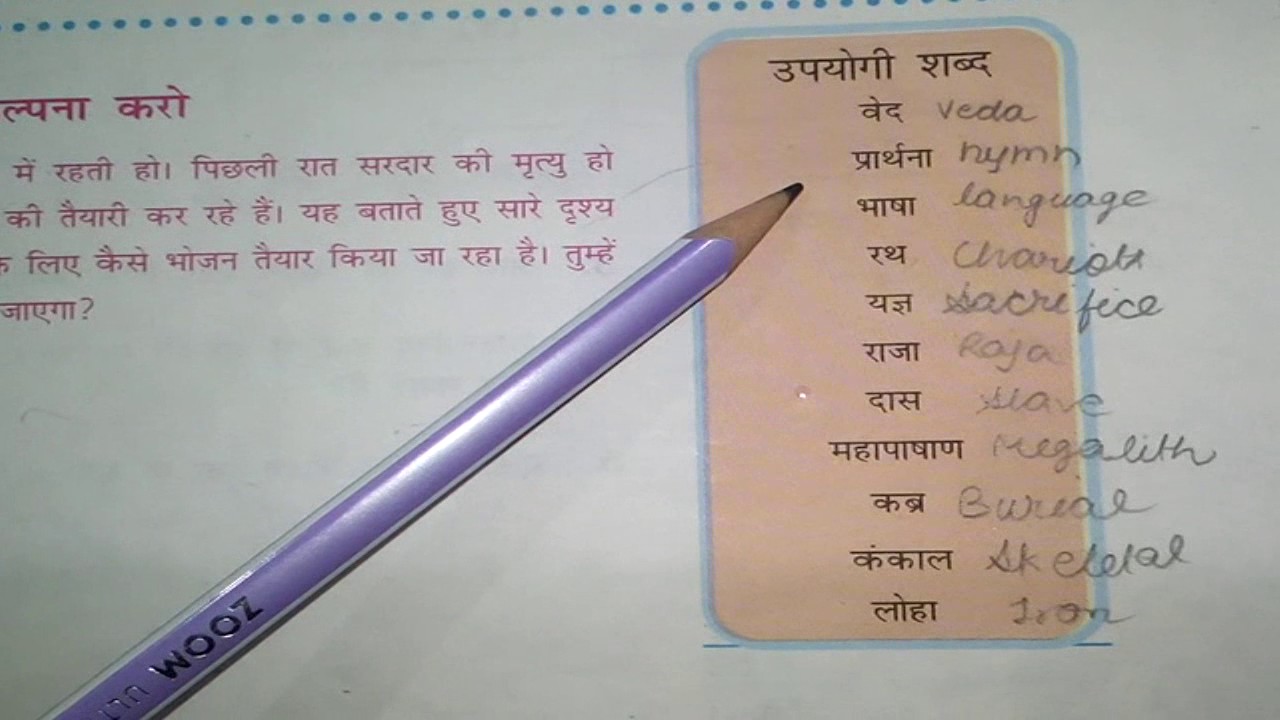 ल्पना करो
में रहती हो। पिछली रात सरदार की मृत्यु हो
की तैयारी कर रहे हैं। यह बताते हुए सारे दृश्य
लिए कैसे भोजन तैयार किया जा रहा है। तुम्हें
जाएगा?
उपयोगी शब्द
वेद veda
प्रार्थना hymn
भाषा language
रथ Chariots
यज्ञ Sacrifice
राजा Raja
दास slave
महापाषाण Megalith
कब्र Burial
कंकाल Skeletal
लोहा Iron
ZOOM ULT